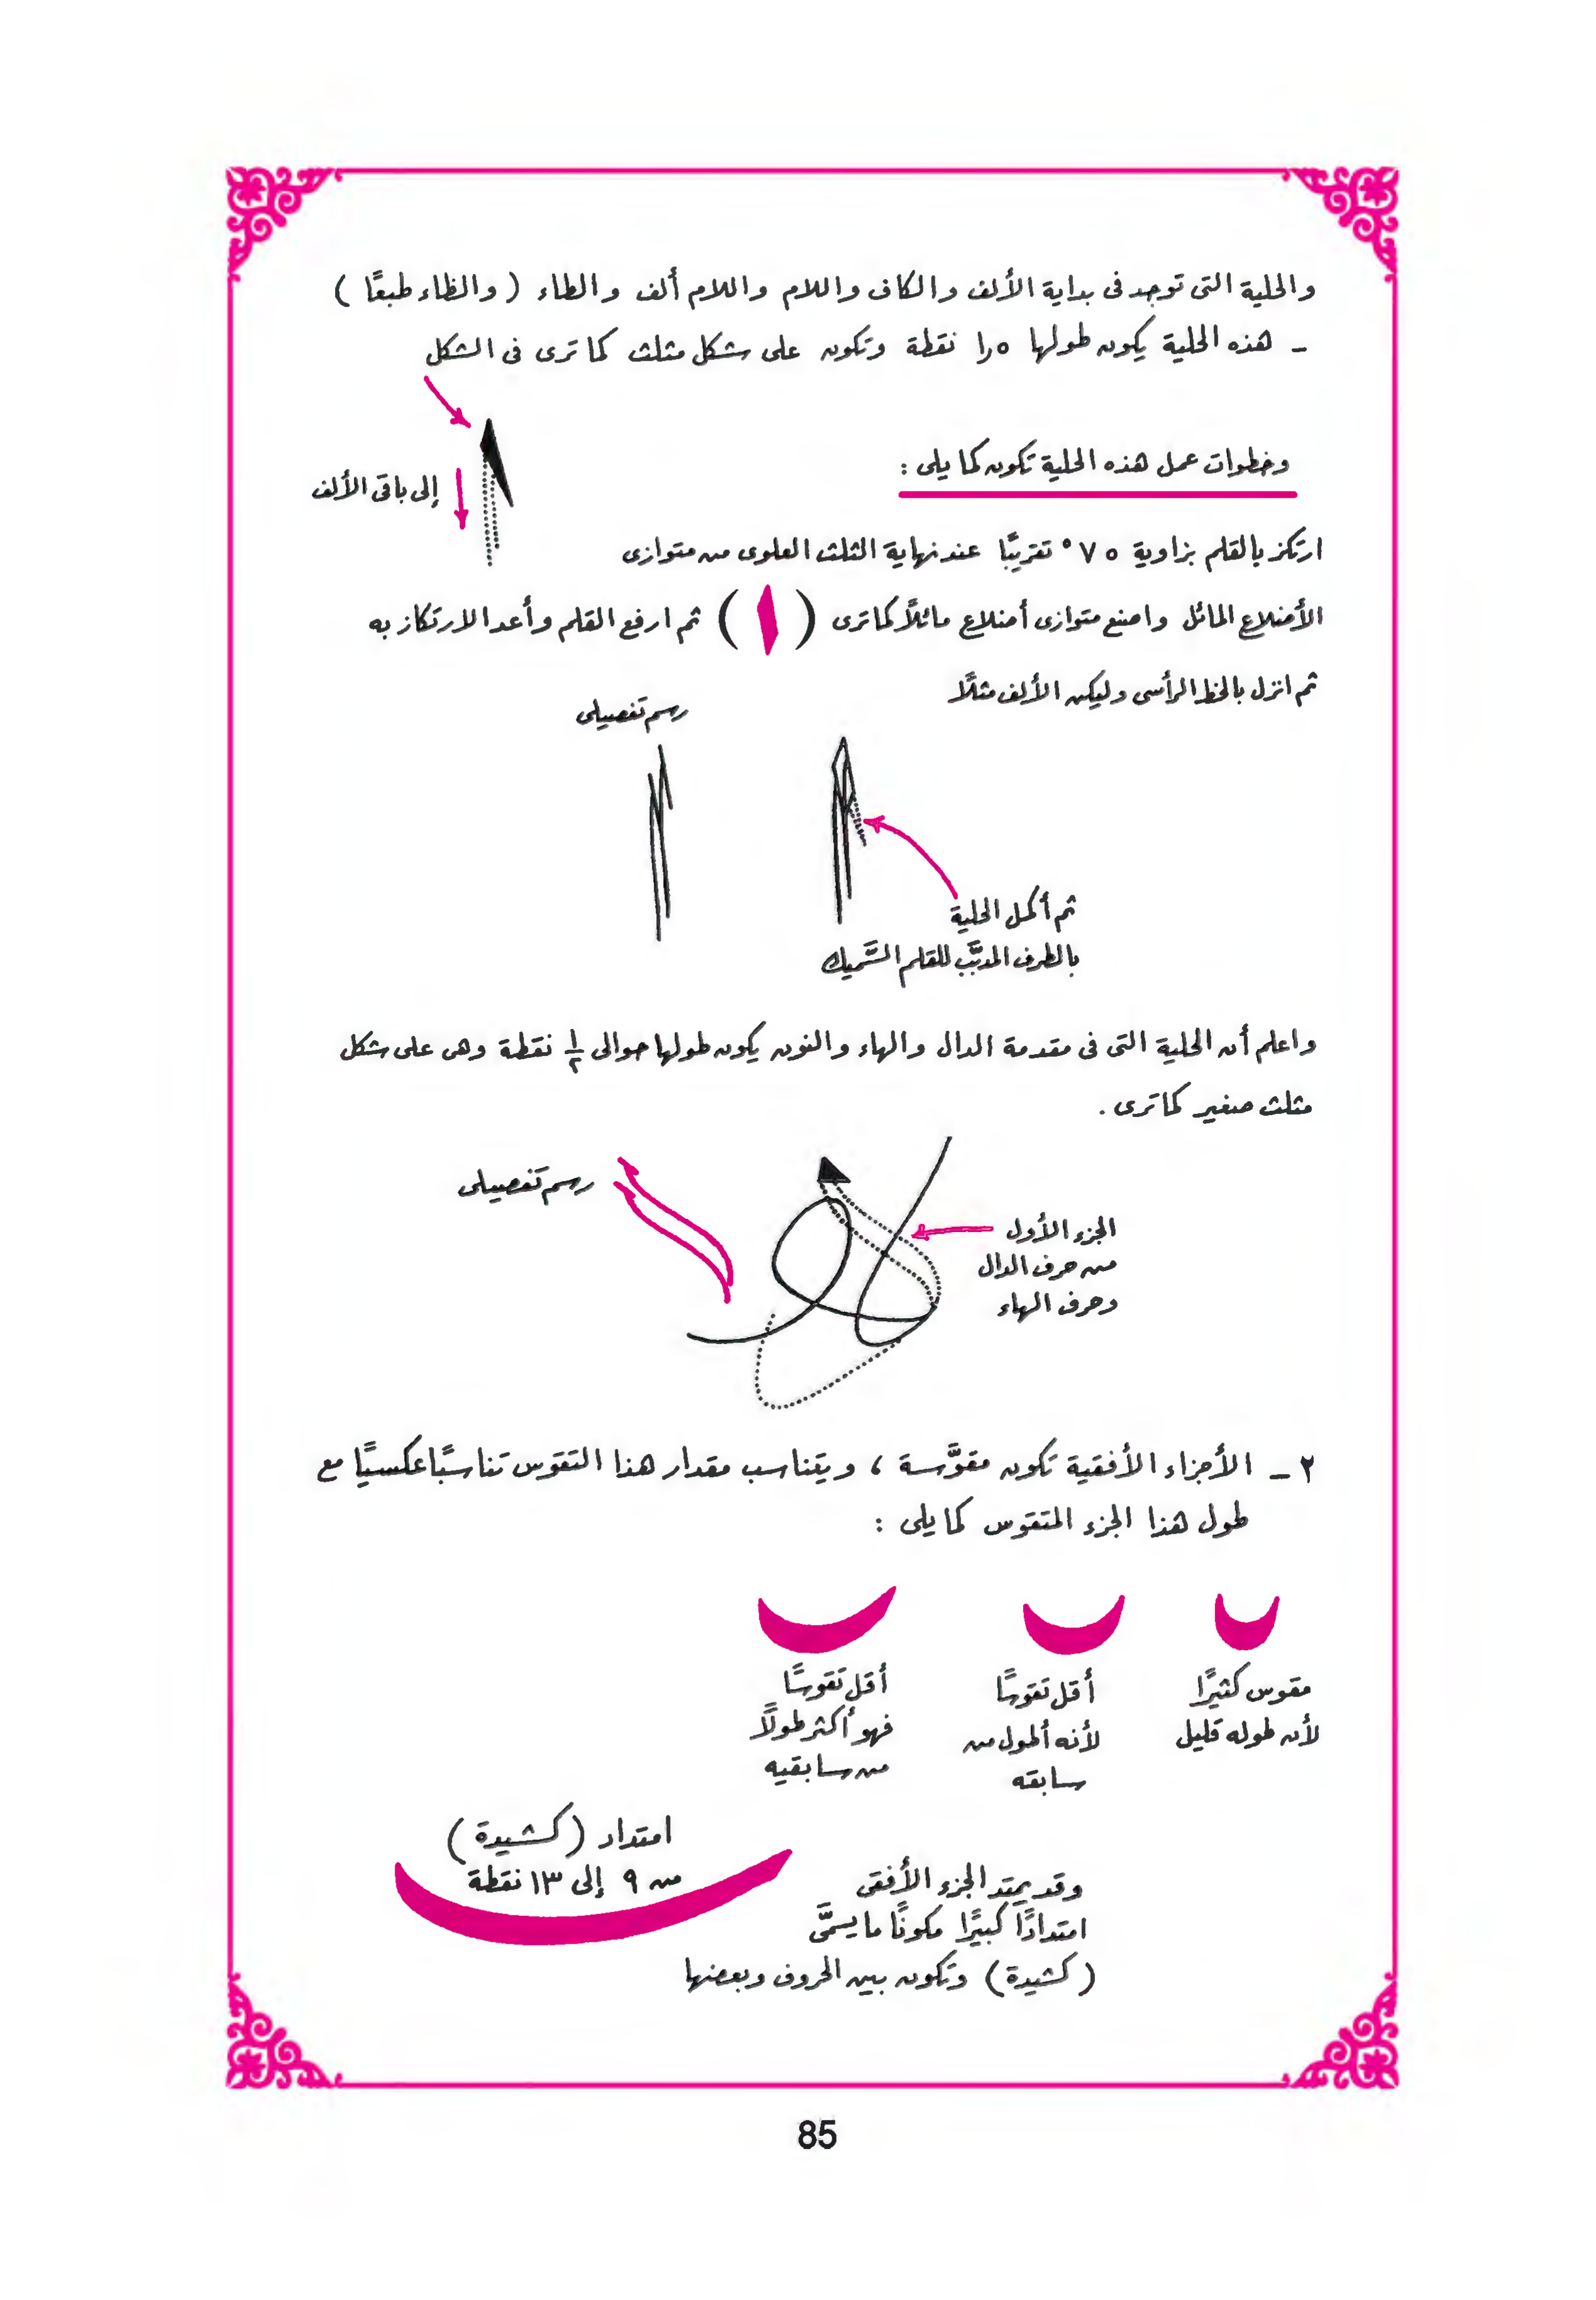 والحلية التى توجد فى بداية الألف والكاف واللام واللام ألف والطاء ( والظاء طبعًا )
ـ هذه الحلية يكون طولها ١٫٥ نقطة وتكون على شكل مثلث كما ترى فى الشكل
إلى باقى الألف
وخطوات عمل هذه الحلية تكون كما يلى :
ارتكز بالقلم بزاوية ٧٥° تقريبًا عند نهاية الثلث العلوى من متوازى
الأضلاع المائل واصنع متوازى أضلاع مائلًا كما ترى ( ) ثم ارفع القلم وأعد الارتكاز به
ثم انزل بالخط الرأسى وليكن الألف مثلًا
رسم تفصيلى
ثم أكمل الحلية
بالطرف المدبَّب للقلم السَّميك
واعلم أن الحلية التى فى مقدمة الدال والهاء والنون يكون طولها حوالى ١/٢ نقطة وهى على شكل
مثلث صغير كما ترى .
رسم تفصيلى
الجزء الأول
من حرف الدال
وحرف الهاء
٢ ـ الأجزاء الأفقية تكون مقوَّسة ، ويتناسب مقدار هذا التقوس تناسبًا عكسيًا مع
طول هذا الجزء المتقوس كما يلى :
مقوس كثيرًا
لأن طوله قليل
أقل تقوسًا
لأنه أطول من
سابقه
أقل تقوسًا
فهو أكثر طولًا
من سابقيه
امتداد ( كشيدة )
من ٩ إلى ١٣ نقطة
وقد يمتد الجزء الأفقى
امتدادًا كبيرًا مكونًا ما يسمَّى
( كشيدة ) وتكون بين الحروف وبعضها
85